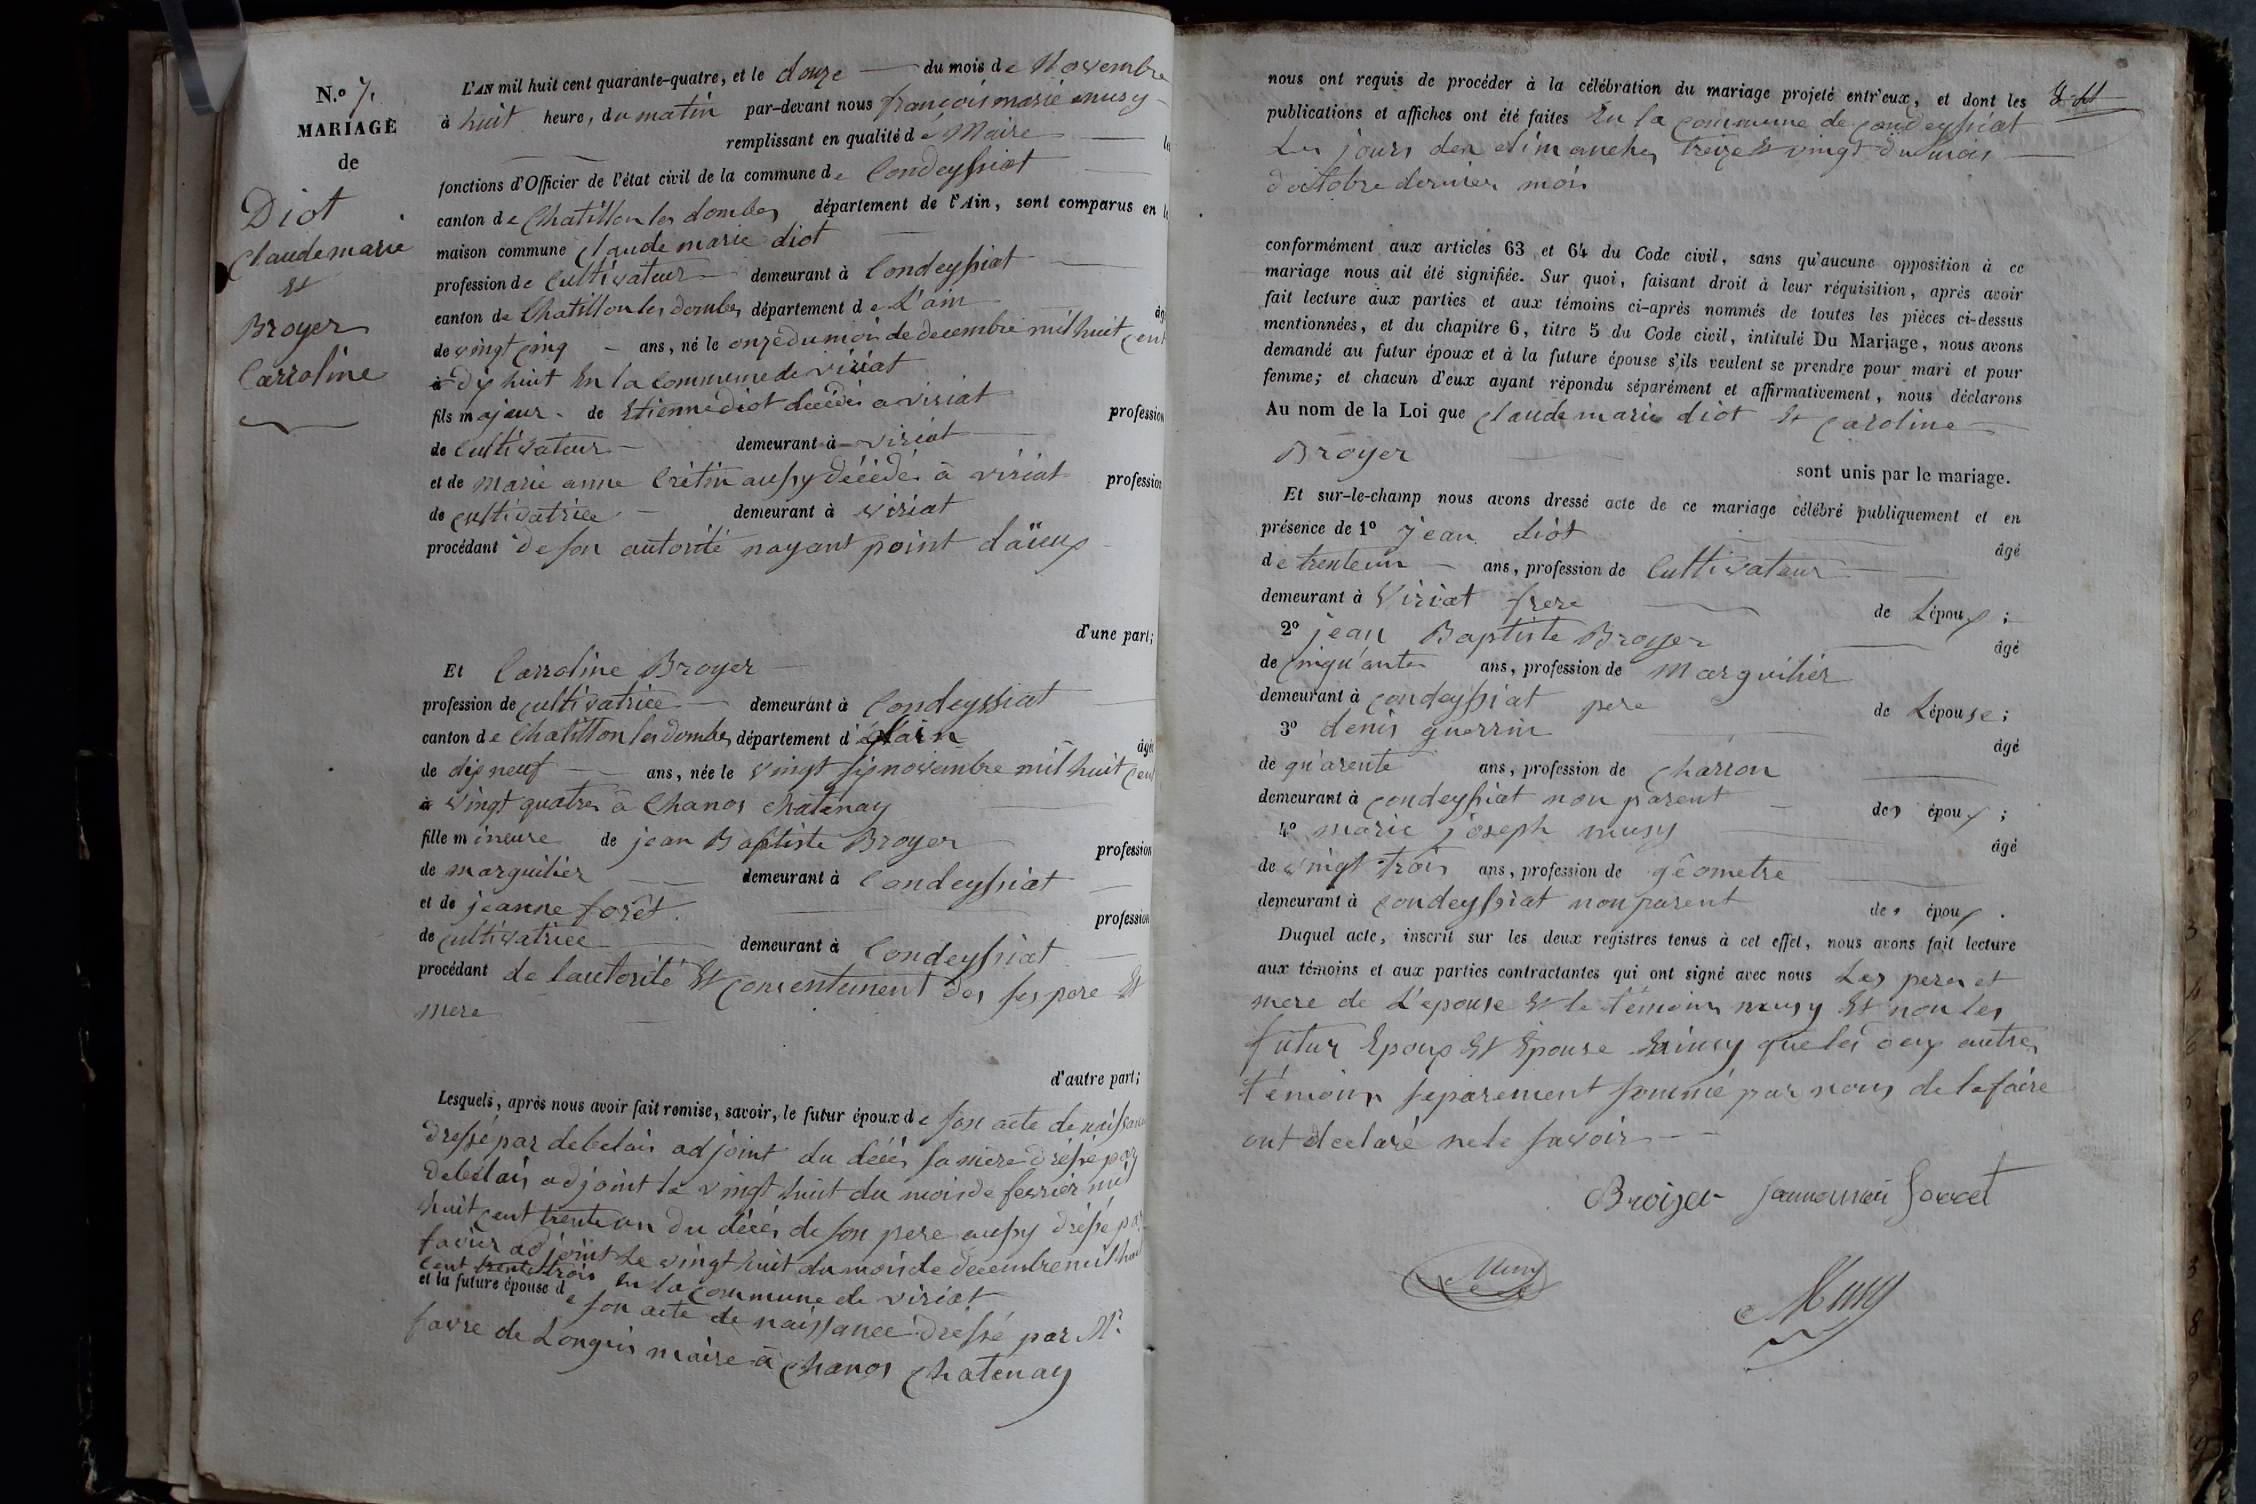 N.o 7.
MARIAGE
de
Diot
Claude marie
Et
Broyer
Carroline
L'AN mil huit cent quarante-quatre, et le douze du mois de Novembre
à huit heure, du matin par-devant nous françois marie musy
remplissant en qualité de Maire le
fonctions d'Officier de l'état civil de la commune de Condeyssiat
canton de Chatillon les dombes département de l'Ain, sont comparus en la
maison commune Claude marie diot
profession de Cultivateur demeurant à Condeyssiat
canton de Chatillon les dombes département de L'ain âgé
de vingt cinq ans, né le onze du mois de decembre mil huit cent
à dix huit En la commune de viriat
fils majeur de Etienne diot décédé a viriat profession
de Cultivateur demeurant à viriat
et de Marie anne Crétin aussy décédé à viriat profession
de cultivatrice demeurant à viriat
procédant de son autorité nayant point d'aïeux
d'une part;
Et Carroline Broyer
profession de cultivatrice demeurant à Condeyssiat
canton de Chatillon les dombes département d' Lain
âgée
de dix neuf ans, née le vingt six novembre mil huit cent
à vingt quatre à Chanos Châtenay
fille mineure de jean Baptiste Broyer profession
de marguilier demeurant à Condeyssiat
et de jeanne forêt profession
de cultivatrice demeurant à Condeyssiat
procédant de lautorité Et consentement des ses pere Et
mere
d'autre part;
Lesquels, après nous avoir fait remise, savoir, le futur époux de son acte de naissance
dressé par debelais adjoint du décès sa mère dréssé par
debelais adjoint le vingt huit du mois de fevrier mil
huit cent trente un du décés de son pere aussy dréssé par
favier adjoint le vingt huit du mois de decembre mil huit
cent trente trois En la commune de viriat
et la future épouse de son acte de naissance dressé par Mr
favre de Longris maire à Chanos Chatenay
nous ont requis de procéder à la célébration du mariage projeté entr'eux, et dont les
publications et affiches ont été faites En la commune de condeyssiat
Les jours den dimanches treize Et vingt du mois
d'octobre dernier mois
conformément aux articles 63 et 64 du Code civil, sans qu'aucune opposition à ce
mariage nous ait été signifiée. Sur quoi, faisant droit à leur réquisition, après avoir
fait lecture aux parties et aux témoins ci-après nommés de toutes les pièces ci-dessus
mentionnées, et du chapitre 6, titre 5 du Code civil, intitulé Du Mariage, nous avons
demandé au futur époux et à la future épouse s'ils veulent se prendre pour mari et pour
femme; et chacun d'eux ayant répondu séparément et affirmativement, nous déclarons
Au nom de la Loi que Claude marie diot Et caroline
Broyer
sont unis par le mariage.
Et sur-le-champ nous avons dressé acte de ce mariage célébré publiquement et en
présence de 1o jean diot âgé
de trente un ans, profession de Cultivateur
demeurant à Viriat frere de Lépoux;
2o jean Baptiste Broyer âgé
de cinqu'ante ans, profession de Marguilier
demeurant à condeyssiat pere de Lépouse;
3o denis guerrin âgé
de qu'arente ans, profession de charron
demeurant à condeyssiat non parent des époux;
4o marie joseph musy âgé
de vingt trois ans, profession de géometre
demeurant à condeyssiat non parent des époux.
Duquel acte, inscrit sur les deux registres tenus à cet effet, nous avons fait lecture
aux témoins et aux parties contractantes qui ont signé avec nous Les peres et
mere de L'epouse Et le témoins musy Et non les
futur Epoux Et Epouse Einsy que les deux autres
témoins separement sommé par nous de le faire
ont declaré ne le savoir
Broyer jeannemari forret
Musy
Musy